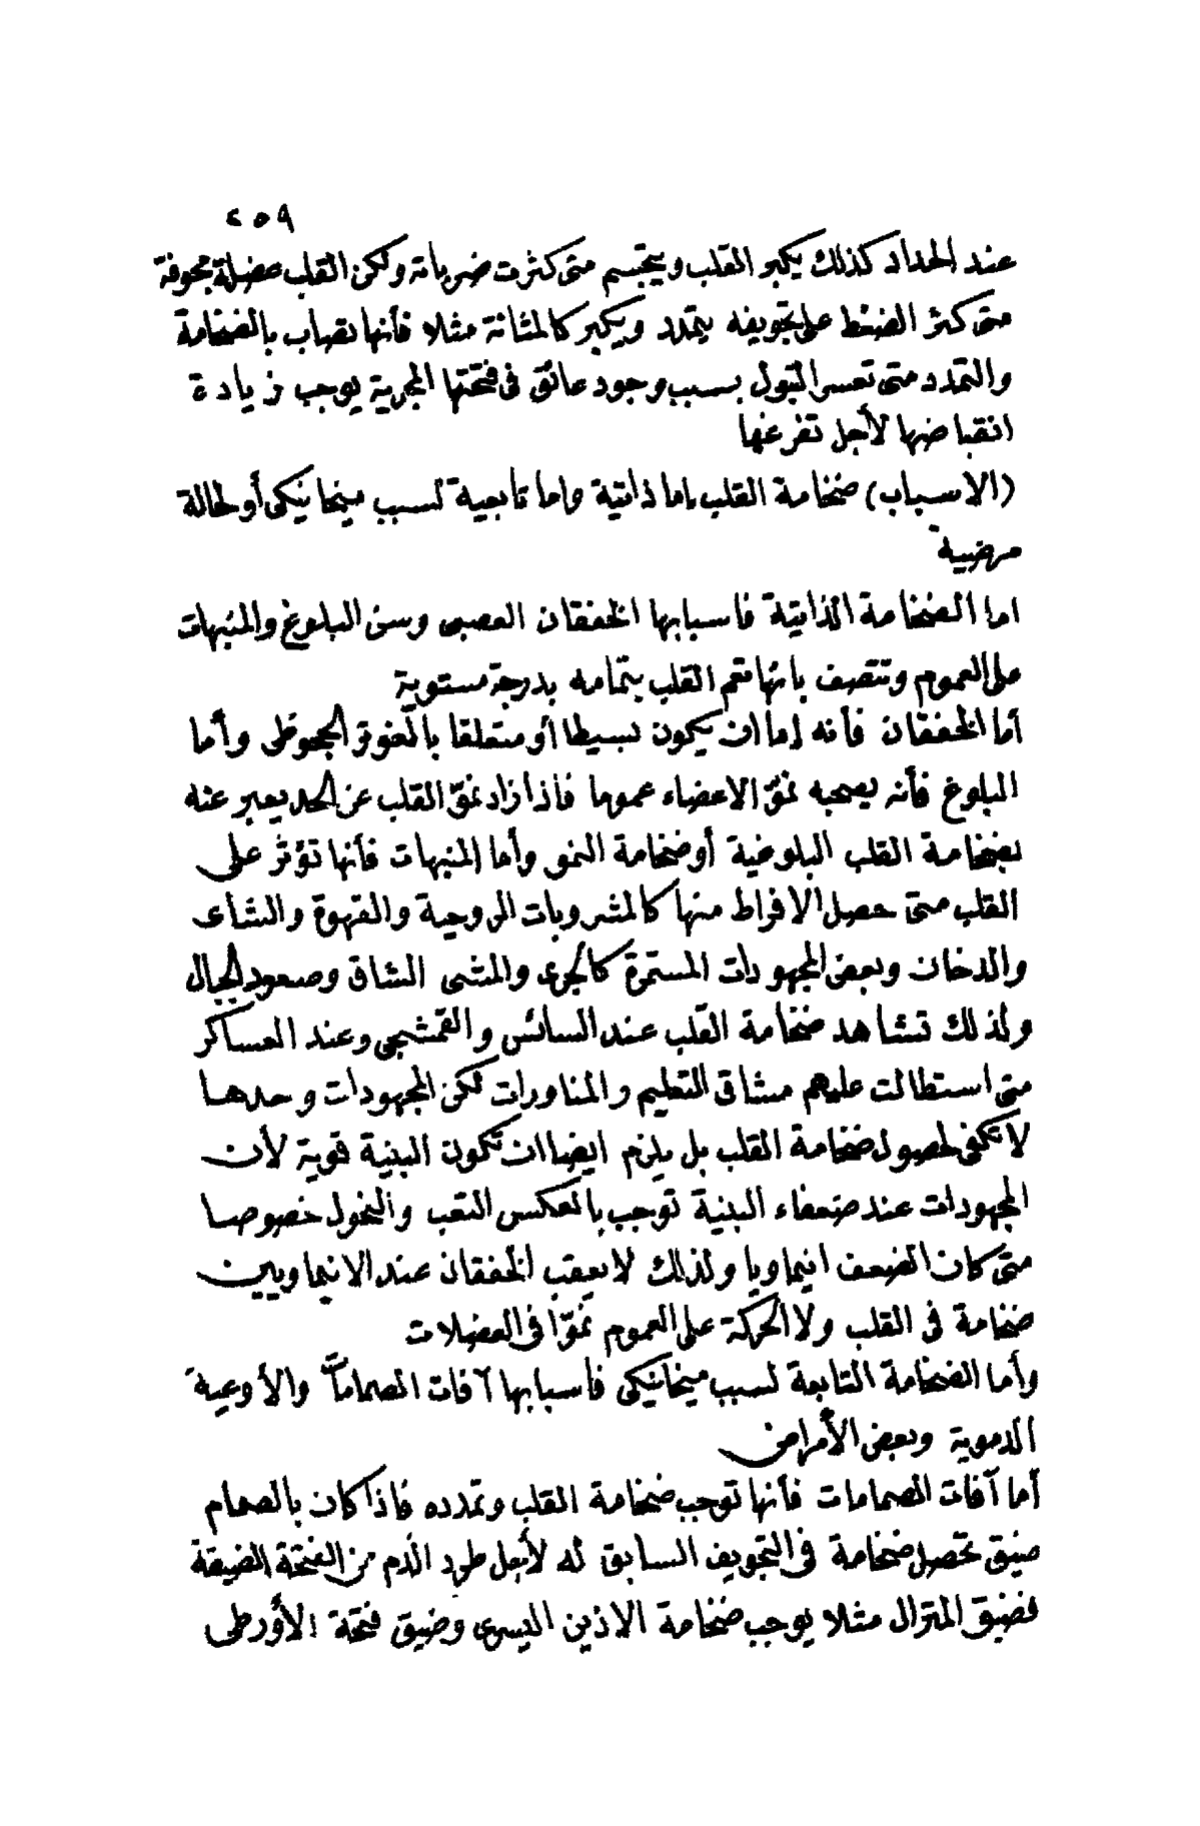 ٢٥٩
عند الحداد كذلك يكبر القلب ويتجسم متى كثرت ضرباته ولكن القلب عضلة مجوفة
متى كثر الضغط على تجويفه يتمدد ويكبر كالمثانة مثلا فأنها تصاب بالضخامة
والتمدد متى تعسر التبول بسبب وجود عائق فى فتحتها المجرية يوجب زيادة
انقباضها لأجل تفرغها
(الاسباب) ضخامة القلب اما ذاتية واما تابعية لسبب ميخانيكى أو لحالة
مرضية
اما الضخامة الذاتية فاسبابها الخفقان العصبى وسن البلوغ والمنبهات
على العموم وتتصف بانها تعم القلب بتمامه بدرجة مستوية
أما الخفقان فأنه إما ان يكون بسيطا أو متعلقا بالغوتر الجحوظى وأما
البلوغ فأنه يصحبه نموّ الاعضاء عموما فاذا زاد نموّ القلب عن الحد يعبر عنه
بضخامة القلب البلوغية أو ضخامة النمو وأما المنبهات فأنها تؤثر على
القلب متى حصل الافراط منها كالمشروبات الروحية والقهوة والشاى
والدخان وبعض المجهودات المستمرة كالجرى والمشى الشاق وصعود الجبال
ولذلك تشاهد ضخامة القلب عند السائس والقمشجى وعند العساكر
متى استطالت عليهم مشاق التعليم والمناورات لكن المجهودات وحدها
لا تكفى لحصول ضخامة القلب بل يلزم ايضا ان تكون البنية قوية لأن
المجهودات عند ضعفاء البنية توجب بالعكس التعب والنحول خصوصا
متى كان الضعف انيماويا ولذلك لا يعقب الخفقان عند الانيماويين
ضخامة فى القلب ولا الحركة على العموم نموّا فى العضلات
وأما الضخامة التابعة لسبب ميخانيكى فأسبابها آفات الصمامات والأوعية
الدموية وبعض الأمراض
أما آفات الصمامات فأنها توجب ضخامة القلب وتمدده فاذا كان بالصمام
ضيق تحصل ضخامة فى التجويف السابق له لأجل طرد الدم من الفتحة الضيقة
فضيق المترال مثلا يوجب ضخامة الاذين اليسرى وضيق فتحة الأورطى